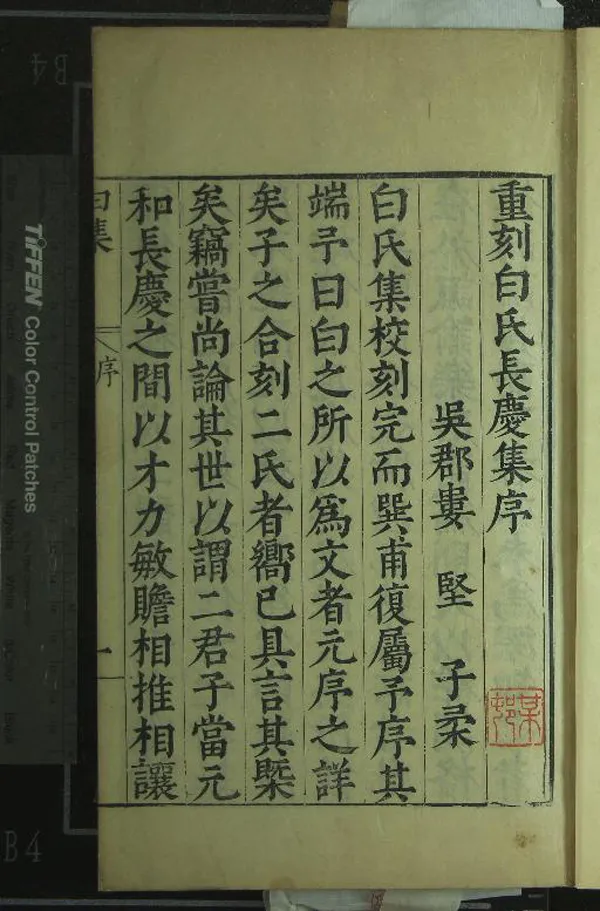 重刻白氏長慶集序
吳郡婁 堅 子柔
白氏集校刻完而巽甫復屬予序其
端予曰白之所以爲文者元序之詳
矣予之合刻二氏者嚮已具言其槩
矣竊嘗尚論其世以謂二君子當元
和長慶之間以才力敏贍相推相讓
白集
序
一
某邨
TIFFEN Color Control Patches
B4
B4